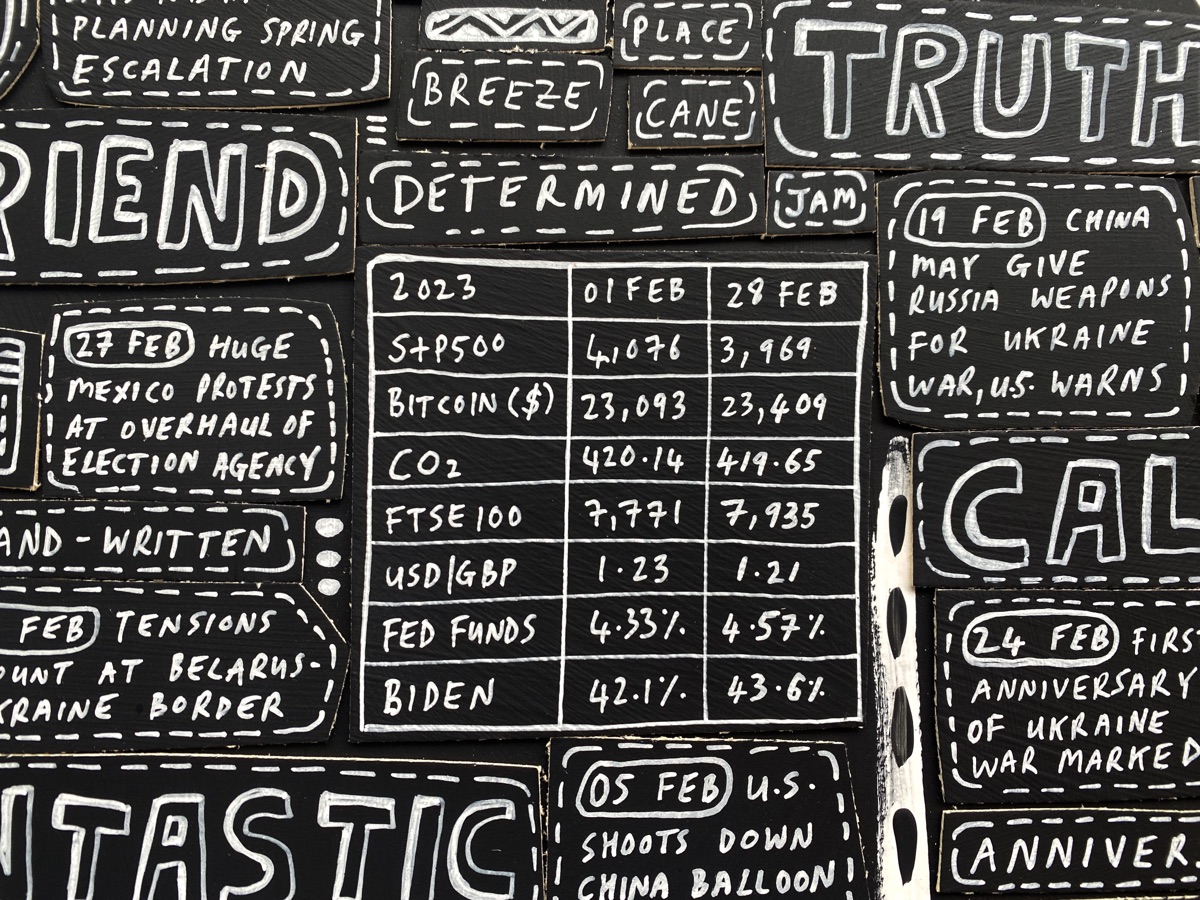 PLANNING SPRING
ESCALATION
BREEZE
PLACE
CANE
TRUTH
RIEND
DETERMINED
JAM
19 FEB CHINA
MAY GIVE
RUSSIA WEAPONS
FOR UKRAINE
WAR, U.S. WARNS
27 FEB HUGE
MEXICO PROTESTS
AT OVERHAUL OF
ELECTION AGENCY
2023 01 FEB 28 FEB
S+P500 4,076 3,969
BITCOIN ($) 23,093 23,409
CO2 420.14 419.65
FTSE 100 7,771 7,935
USD/GBP 1.23 1.21
FED FUNDS 4.33% 4.57%
BIDEN 42.1% 43.6%
CAL
AND-WRITTEN
FEB TENSIONS
OUNT AT BELARUS-
KRAINE BORDER
24 FEB FIRS
ANNIVERSARY
OF UKRAINE
WAR MARKED
NTASTIC
05 FEB U.S.
SHOOTS DOWN
CHINA BALLOON
ANNIVER